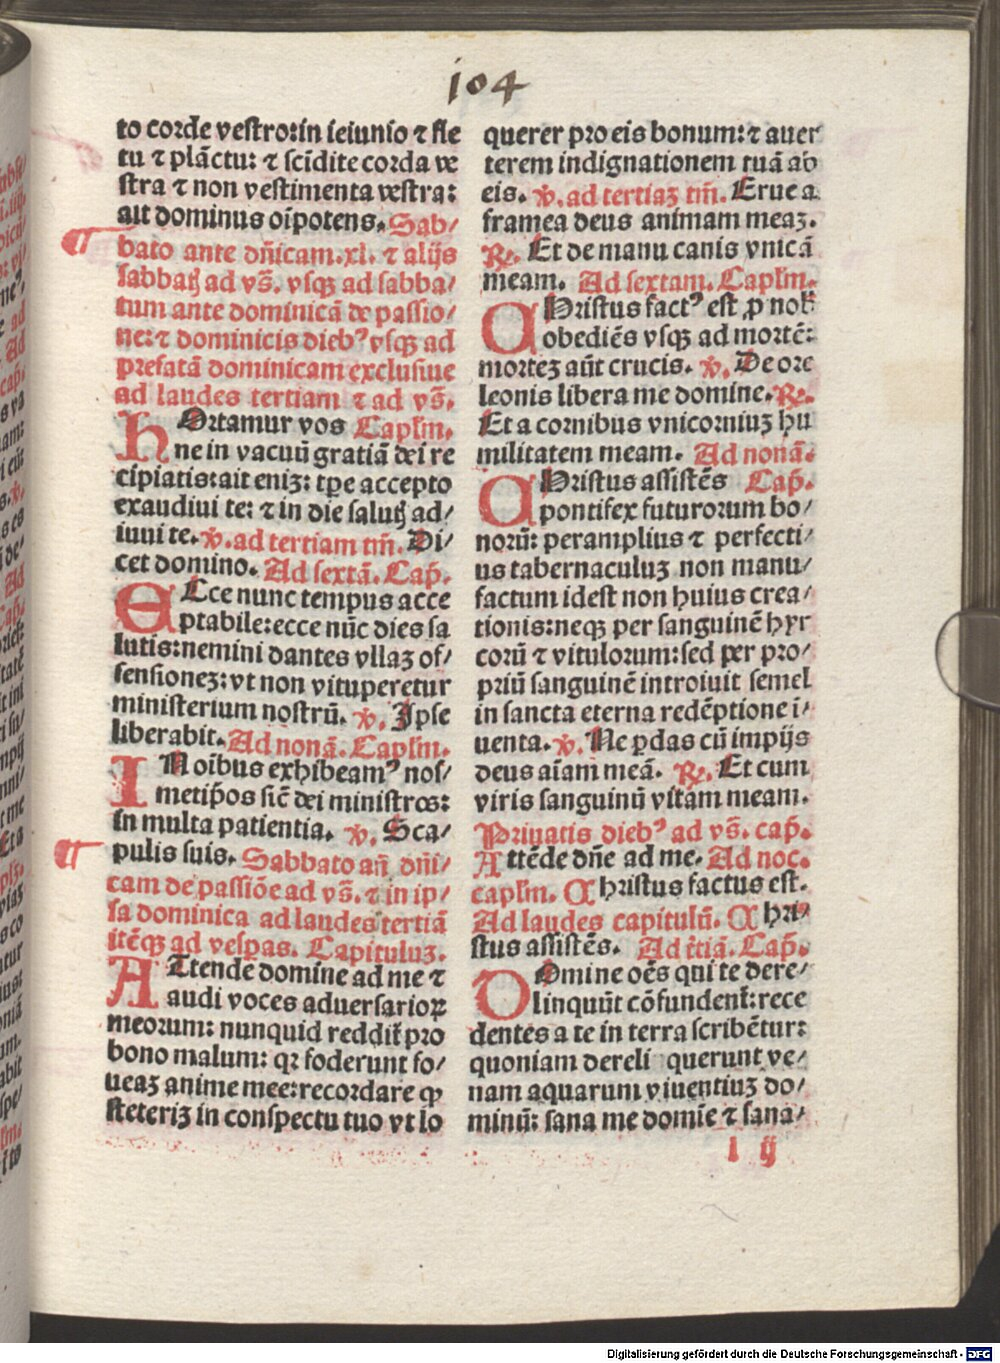 104
to corde vestro: in ieiunio ⁊ fle
tu ⁊ plāctu: ⁊ scīdite corda ve
stra ⁊ non vestimenta vestra:
ait dominus oīpotens. Sab/
bato ante dn̄icam. xl. ⁊ alijs
sabbatꝭ ad vs̄. vsqꝫ ad sabba/
tum ante dominicā de passio/
ne: ⁊ dominicis diebꝰ vsqꝫ ad
prefatā dominicam exclusiue
ad laudes tertiam ⁊ ad vs̄.
HOrtamur vos Caplm̄.
ne in vacuū gratiā dei re
cipiatis: ait enīꝫ: tꝑe accepto
exaudiui te: ⁊ in die salutꝭ ad/
iuui te. ℣. ad tertiam tm̄. Di/
cet domino. Ad sextā. Cap̄.
ECce nunc tempus acce
ptabile: ecce nūc dies sa
lutis: nemini dantes vllaꝫ of/
fensioneꝫ: vt non vituperetur
ministerium nostrū. ℣. Ipse
liberabit. Ad nonā. Caplm̄.
IN oībus exhibeamꝰ nos/
metip̄os sic̄ dei ministros:
in multa patientia. ℣. Sca/
pulis suis. Sabbato an̄ dn̄i/
cam de passiōe ad vs̄. ⁊ in ip/
sa dominica ad laudes tertiā
itēqꝫ ad vesꝑas. Capituluꝫ.
ATtende domine ad me ⁊
audi voces aduersarioꝝ
meorum: nunquid reddit̄ pro
bono malum: qꝛ foderunt fo/
ueaꝫ anime mee: recordare ꝙ
steteriꝫ in conspectu tuo vt lo
querer pro eis bonum: ⁊ auer
terem indignationem tuā ab
eis. ℣. ad tertiaꝫ tm̄. Erue a
framea deus animam meaꝫ.
℟. Et de manu canis vnicā
meam. Ad sextam. Caplm̄.
CHristus factꝰ est ꝓ nob̄
obediēs vsqꝫ ad mortē:
morteꝫ aūt crucis. ℣. De ore
leonis libera me domine. ℟.
Et a cornibus vnicorniuꝫ hu
militatem meam. Ad nonā.
CHristus assistēs Cap̄.
pontifex futurorum bo/
norū: per amplius ⁊ perfecti/
us tabernaculuꝫ non manu/
factum id est non huius crea/
tionis: neqꝫ per sanguinē hyr
corū ⁊ vitulorum: sed per pro/
priū sanguinē introiuit semel
in sancta eterna redēptione i/
uenta. ℣. Ne ꝑdas cū impijs
deus aīam meā. ℟. Et cum
viris sanguinū vitam meam.
Priuatis diebꝰ ad vs̄. cap̄.
Attēde dn̄e ad me. Ad noc.
caplm̄. Christus factus est.
Ad laudes capitulū. Chri/
stus assistēs. Ad t̄tiā. Cap̄.
DOmine oēs qui te dere/
linquūt cōfundent̄: rece
dentes a te in terra scribētur:
quoniam dereliquerunt ve/
nam aquarum viuentiuꝫ do/
minū: sana me domīe ⁊ sana/
l ij
Digitalisierung gefördert durch die Deutsche Forschungsgemeinschaft - DFG